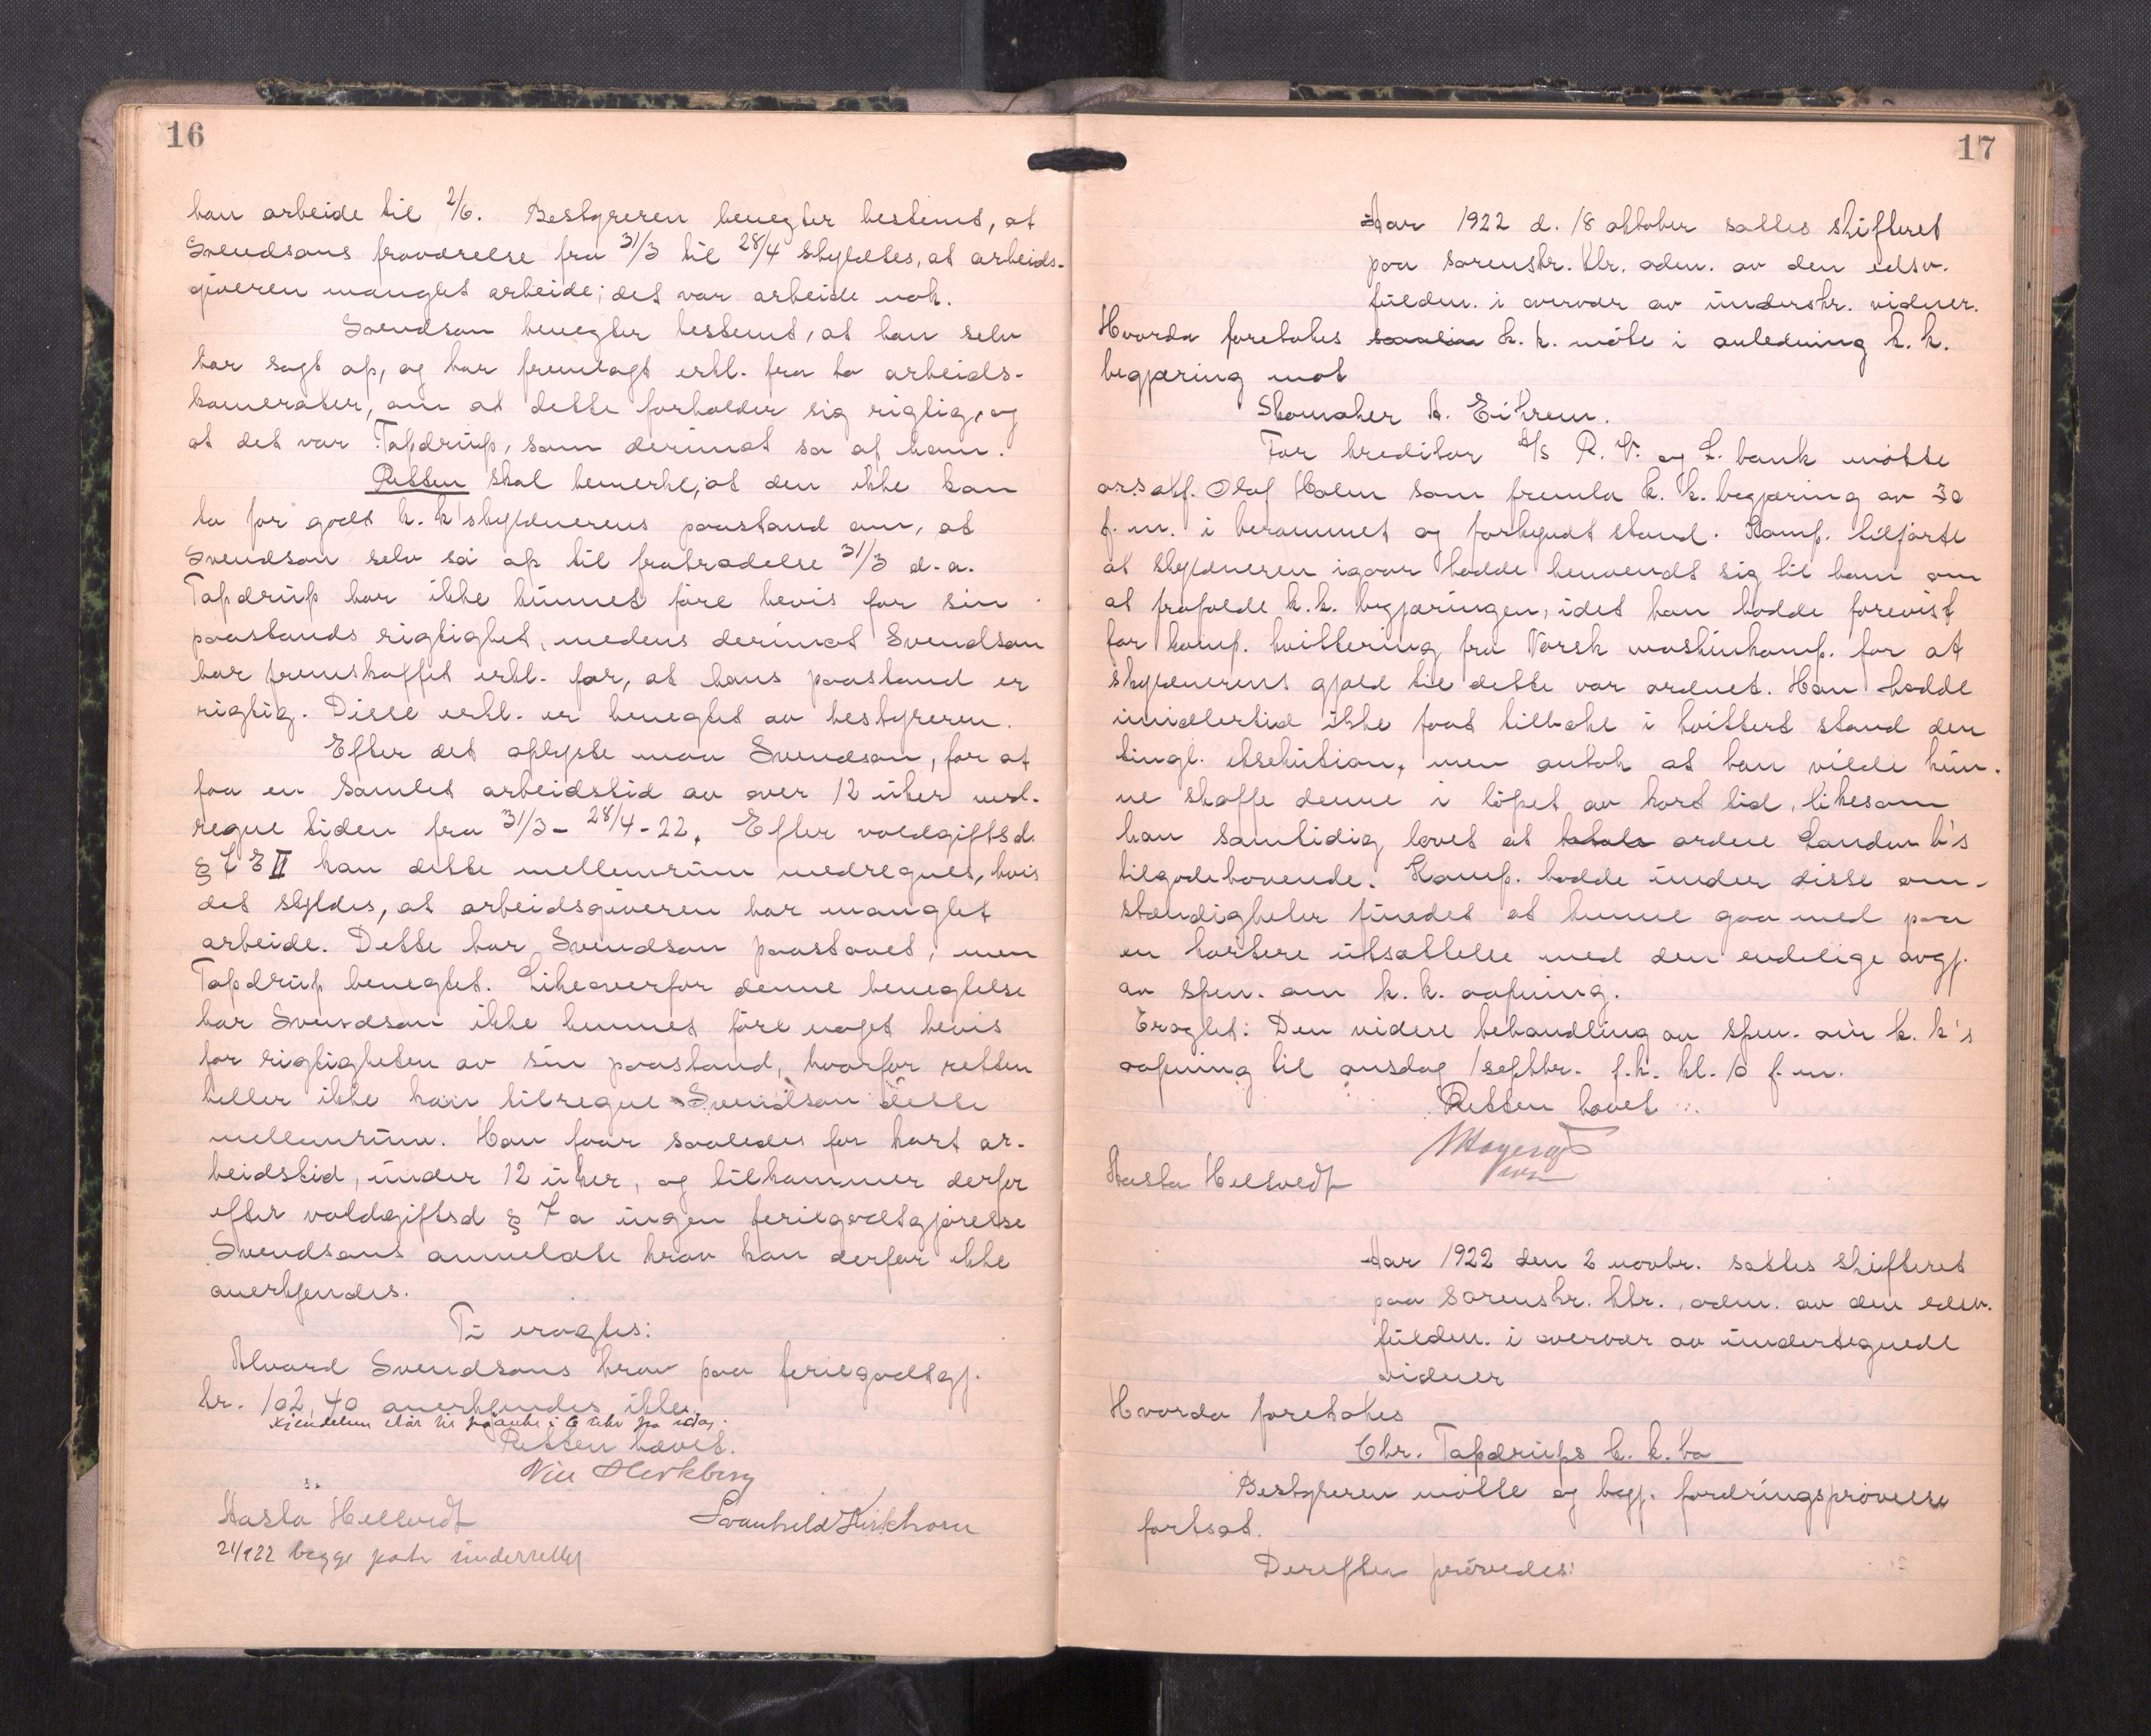 16
han arbeide til 2/6. Bestyreren benegter bestemt, at
Svendsens fraværelse fra 31/3 til 28/4 skyldtes, at arbeids-
giveren manglet arbeide; det var arbeide nok.
Svendsen benegter bestemt, at han selv
har sagt op, og har fremlagt erkl. fra to arbeids-
kamerater, om at dette forholder sig rigtig, og
at det var Tapdrup, som derimot sa op ham.
Retten skal bemerke, at den ikke kan
ta for godt k. k'skyldnerens paastand om, at
Svendsen selv sa op til fratrædelse 31/3 d. a.
Tapdrup har ikke kunnet føre bevis for sin
paastands rigtighet, medens derimot Svendsen
har fremskaffet erkl. for, at hans paastand er
rigtig. Disse erkl. er benegtet av bestyreren.
Efter det oplyste maa Svendsen, for at
faa en samlet arbeidstid av over 12 uker med-
regne tiden fra 31/3 - 28/4 - 22. Efter voldgiftsd.
§ 7 E II kan dette mellemrum medregnes, hvis
det skyldes, at arbeidsgiveren har manglet
arbeide. Dette har Svendsen paastaaet, men
Tapdrup benegtet. Likeoverfor denne benegtelse
har Svendsen ikke kunnet føre noget bevis
for rigtigheten av sin paastand, hvorfor retten
heller ikke kan tilregne Svendsen dette
mellemrum. Han faar saaledes for kort ar-
beidstid, under 12 uker, og tilkommer derfor
efter voldgiftsd § 7 a ingen feriegodtgjørelse
Svendsens anmeldte krav kan derfor ikke
anerkjendes.
Ti eragtes:
Alvard Svendsens krav paa feriegodtgj.
kr. 102,40 anerkjendes ikke.
Kjendelsen står til påanke i 6 uker fra idag.
Retten hævet.
Nils Herkberg
Aasta Hellvedt
Svanhild Kirkhorn
21/9 22 begge parter underrettet
17
Aar 1922 d. 18 oktober sattes skifteret
paa sorenskr. ktr. adm. av den edsv.
fuldm. i overvær av underskr. vidner.
Hvorda foretokes k. k. møte i anledning k. k.
begjæring mot
Skomaker A. Eikrem.
For kreditor A/S R. V. og L. bank møtte
o.r.sakf. Olaf Holm som fremla k. k. begjæring av 30
f. m. i berammet og forkyndt stand. Komp. tilførte
at skyldneren igaar hadde henvendt sig til ham om
at frafalde k. k. begjæringen, idet han hadde forevist
for komp. kvittering fra Norsk maskinkomp. for at
skyldnerens gjæld til dette var ordnet. Han hadde
imidlertid ikke faat tilbake i kvittert stand den
tingl. eksekution, men antok at han vilde kun-
ne skaffe denne i løpet av kort tid, likesom
han samtidig lovet at ordne Landm b's
tilgodehavende. Komp. hadde under disse om-
stændigheter fundet at kunne gaa med paa
en kortere utsættelse med den endelige avgj.
av spm. om k. k. aapning.
Eragtet: Den videre behandling av spm. om k. k's
aapning til onsdag 1 septbr. f. k. kl. 10 f. m.
Retten hævet
Aasta Hellvedt
Aar 1922 den 2 novbr. sattes skifteret
paa sorenskr. ktr., adm. av den edsv.
fuldm. i overvær av undertegnede
vidner
Hvorda foretokes
Chr. Tapdrups k. k. bo
Bestyreren møtte og begj. fordringsprøvelse
fortsat.
Derefter prøvedes: